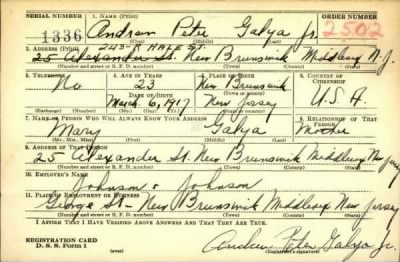 SERIAL NUMBER 1. NAME (Print) ORDER NUMBER
1336 Andrew Peter Galya Jr. 2502
(First) (Middle) (Last)
243-R HALE ST.
2. ADDRESS (Print)
25 Alexander St. New Brunswick Middlesex N.J.
(Number and street or R. F. D. number) (Town) (County) (State)
3. TELEPHONE 4. AGE IN YEARS 5. PLACE OF BIRTH 6. COUNTRY OF CITIZENSHIP
No 23 New Brunswick
DATE OF BIRTH (Town or county)
March 6, 1917 New Jersey U.S.A.
(Exchange) (Number) (Mo.) (Day) (Yr.) (State or country)
7. NAME OF PERSON WHO WILL ALWAYS KNOW YOUR ADDRESS 8. RELATIONSHIP OF THAT PERSON
Mary Galya Mother
(Mr., Mrs., Miss) (First) (Middle) (Last)
9. ADDRESS OF THAT PERSON
25 Alexander St. New Brunswick Middlesex New Jersey
(Number and street or R. F. D. number) (Town) (County) (State)
10. EMPLOYER'S NAME
Johnson & Johnson
11. PLACE OF EMPLOYMENT OR BUSINESS
George St- New Brunswick Middlesex New Jersey
(Number and street or R. F. D. number) (Town) (County) (State)
I AFFIRM THAT I HAVE VERIFIED ABOVE ANSWERS AND THAT THEY ARE TRUE.
REGISTRATION CARD
D. S. S. Form 1 Andrew Peter Galya Jr.
(Registrant's signature)